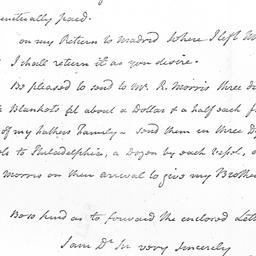 punctually paid.
on my Return to Madrid where I left M
I shall return it as you desire.
Be pleased to send to Mr. R. Morris three do
Blankets at about a Dollar & a half each f
of my fathers Family – send them in three D
to Philadelphia, a Dozen by each Vessel,
Morris on their arrival to give my Brother
Be so kind as to forward the enclosed Lette
I am Dr Sir very sincerely